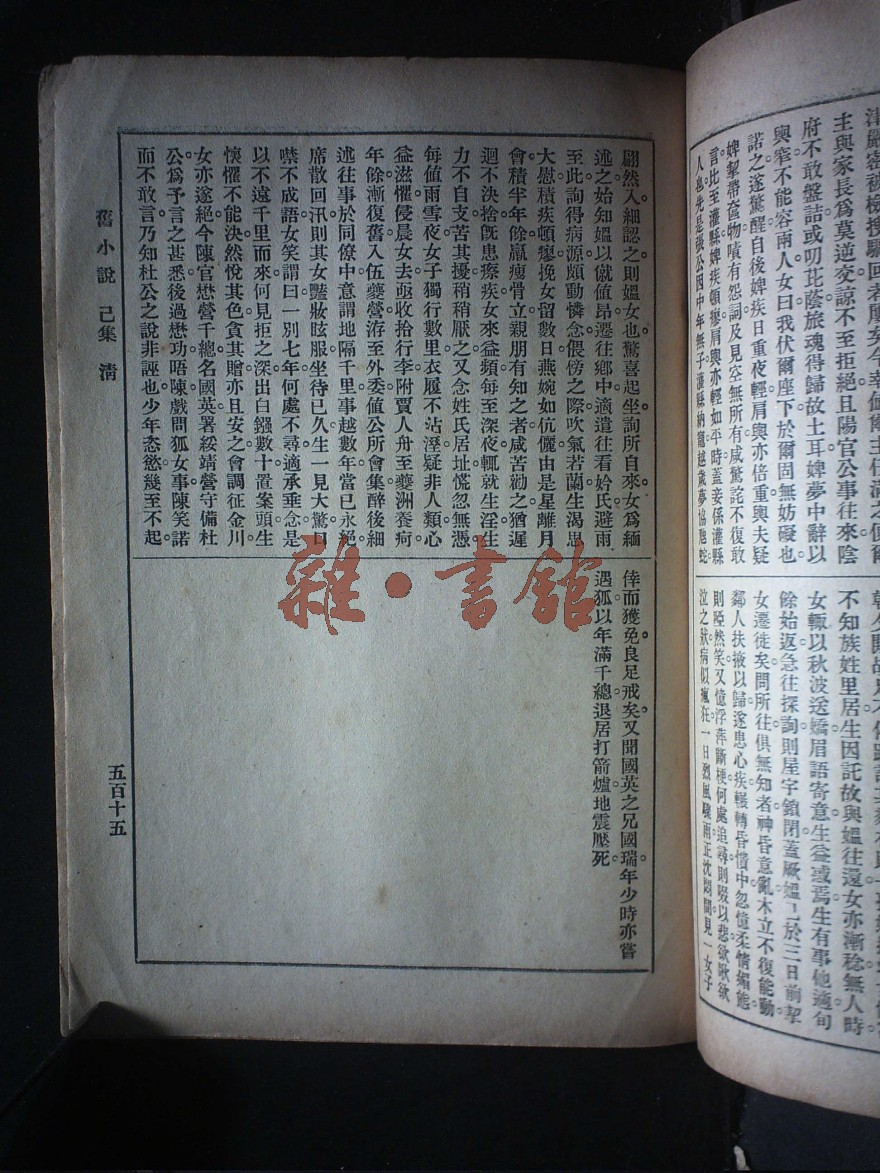 津嚴密被檢搜驅回者屢
主與家長爲莫逆交諒不至拒絕且陽官公事往來陰
府不敢盤詰或叨芘蔭旅魂得歸故土耳婢夢中辭以
輿窄不能容兩人女曰我伏爾座下於爾固無妨礙也
諾之遂驚醒自後婢疾日重夜輕肩輿亦倍重輿夫疑
婢挈帶奩物嘖有怨詞及見空無所有咸驚詫不復敢
言比至灌縣婢疾頓瘳肩輿亦輕如平時蓋妾係灌縣
人也先是張公因中年無子灌縣納寵越歲夢協虺蛇
不知族姓里居生因託故與媼往還女亦漸稔無人時
女輒以秋波送嬌眉語寄意生益惑焉生有事他適旬
餘始返急往探詢則屋宇鎖閉蓋厥媼已於三日前挈
女遷徙矣問所往俱無知者神昏意亂木立不復能動
鄰人扶掖以歸遂患心疾輾轉昏憒中忽憶柔情媚態
則啞然笑又憶浮萍斷梗何處追尋則啜以悲欷歔欲
泣之狀病似瘋狂一日烈風驟雨正沈悶間見一女子
翩然入細認之則媼女也驚喜起坐詢所自來女爲緬
述之始知媼以僦値昂遷往鄉中適遣往看妗氏避雨
至此詢得病源頗動憐念偎傍之際吹氣若蘭生渴思
大慰積疾頓瘳挽女留數日燕婉如伉儷由是星離月
會積半年餘羸瘦骨立親朋有知之者咸苦勸之猶遲
迴不決捨旣患瘵疾女來益頻每至深夜輒就生淫生
力不自支苦其擾稍稍厭之又念姓氏居址慌忽無憑
每値雨雪夜女子獨行數里衣履不沾溼疑非人類心
益滋懼侵晨女去亟收拾行李附賈人舟至夔洲養疴
年餘漸復舊入伍夔營洊至外委値公所會集醉後細
述往事於同僚中意謂地隔千里事越數年當已永絕
席散回汛則其女豔妝眩服坐待已久生一見大驚口
噤不成語女笑謂曰一別七年何處不尋適承垂念是
以不遠千里而來何見拒之深出白鏹數十置案頭生
懷懼不能決然悅其色貪其贈亦且安之會調征金川
女亦遂絕今陳官懋營千總名國英署綏靖營守備杜
公爲予言之甚悉後過懋功唔陳戲問狐女事陳笑諾
而不敢言乃知杜公之說非誣也少年恣慾幾至不起
倖而獲免良足戒矣又聞國英之兄國瑞年少時亦嘗
遇狐以年滿千總退居打箭爐地震壓死
舊小說 己集 淸
五百十五
雜·書館